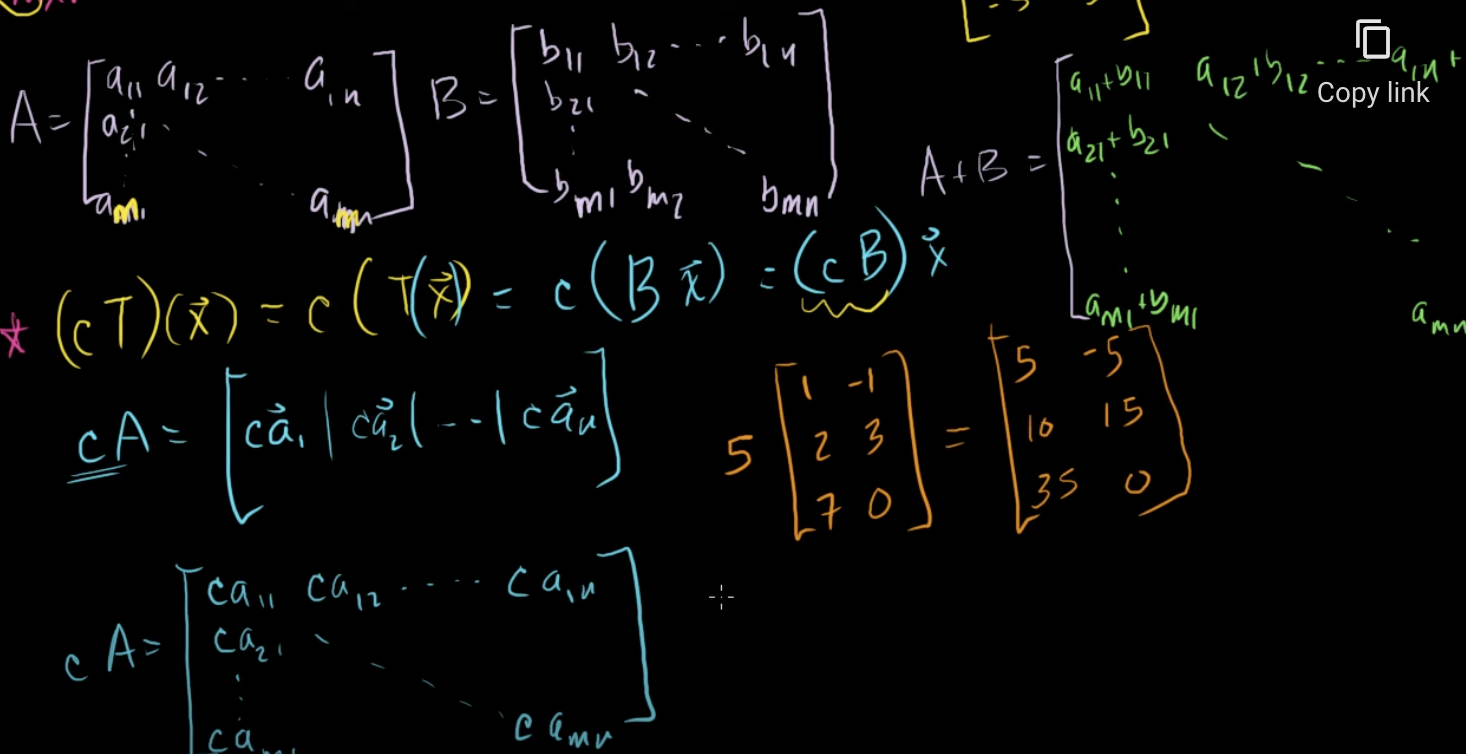 A = [a₁₁ a₁₂ ⋯ a₁ₙ
a₂₁
aₘ₁ aₘₙ]
B = [b₁₁ b₁₂ ⋯ b₁ₙ
b₂₁
bₘ₁ bₘ₂ bₘₙ]
Copy link
A+B = [a₁₁+b₁₁ a₁₂+b₁₂ ⋯ a₁ₙ+
a₂₁+b₂₁
aₘ₁+bₘ₁ aₘₙ
* (cT)(x⃗) = c(T(x⃗) = c(Bx⃗) = (cB)x⃗
cA = [ca⃗₁ | ca⃗₂ | ⋯ | ca⃗ₙ]
5 [1 -1
2 3
7 0]
= [5 -5
10 15
35 0]
cA = [ca₁₁ ca₁₂ ⋯ ca₁ₙ
ca₂₁
ca caₘₙ]